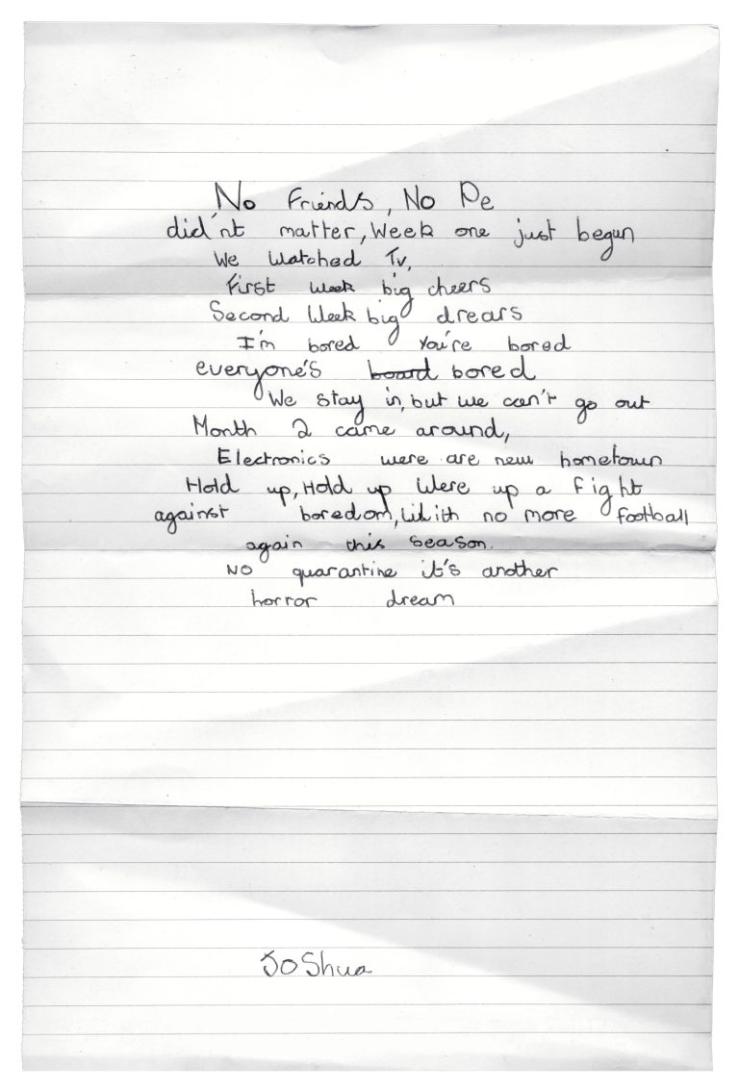 No Friends, No Pe
did'nt matter, Week one just begun
We watched Tv,
First week big cheers
Second Week big drears
I'm bored You're bored
everyone's board bored
We stay in, but we can't go out
Month 2 came around,
Electronics were are new hometown
Hold up, Hold up Were up a Fight
against boredom, With no more football
again this season.
No quarantine it's another
horror dream
JoShua